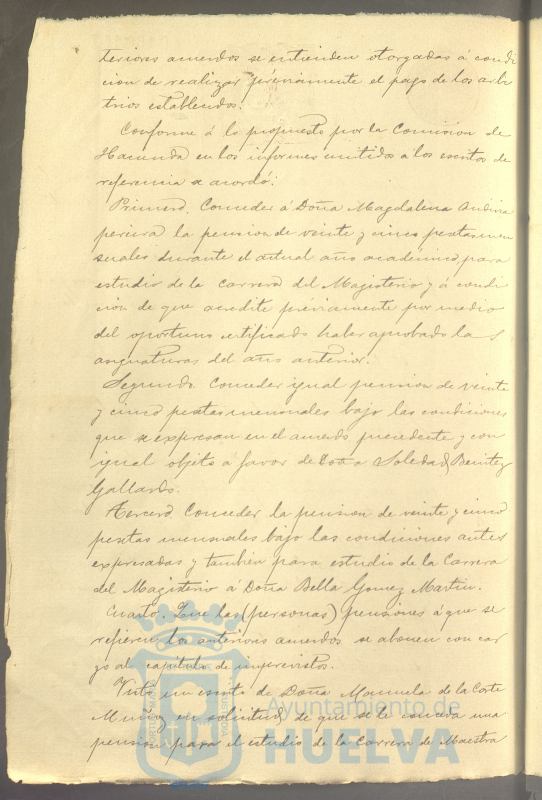 teriores acuerdos se entienden otorgadas á condi
cion de realizar préviamente el pago de los arbi
trios establecidos.
Conforme á lo propuesto por la Comision de
Hacienda en los informes emitidos a los escritos de
referencia se acordó:
Primero. Conceder á Doña Magdalena
pereira la pension de veinte y cinco pesetas men
suales durante el actual año academico, para
estudio de la carrera del Magisterio y á condi
cion de que acredite préviamente por medio
del oportuno certificado haber aprobado las
asignaturas del año anterior.
Segundo. Conceder igual pension de veinte
y cinco pesetas mensuales bajo las condiciones
que se expresan en el acuerdo precedente y con
igual objeto a favor de Doña Soledad Benitez
Gallardo.
Tercero. Conceder la pension de veinte y cinco
pesetas mensuales bajo las condiciones antes
expresadas y tambien para estudio de la Carrera
del Magisterio á Doña Bella Gomez Martin.
Cuarto. Que las (personas) pensiones á que se
refieren los anteriores acuerdos se abonen con car
go al capitulo de imprevistos.
Visto un escrito de Doña Manuela de la Corte
Muñoz en solicitud de que se le conceda una
pension para el estudio de la Carrera de Maestra
Ayuntamiento de
HUELVA